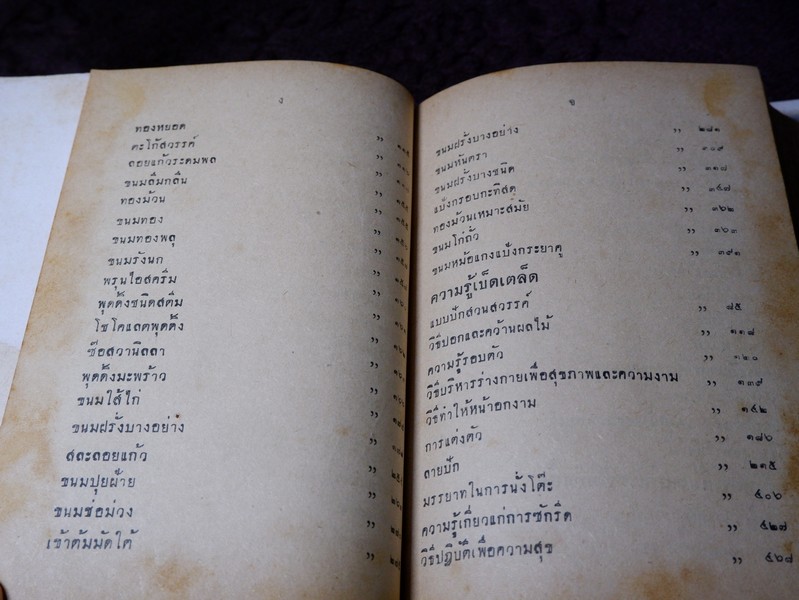 ง
ทองหยอด
ตะโก้สวรรค์
ลอยแก้วระคมพล
ขนมลืมกลืน
ทองม้วน
ขนมทอง
ขนมทองพลุ
ขนมรังนก
พรุนไอสครีม
พุดดิ้งชนิดสตีม
โชโคแลตพุดดิ้ง
ซ๊อสวานิลลา
พุดดิ้งมะพร้าว
ขนมใส้ไก่
ขนมฝรั่งบางอย่าง
สละลอยแก้ว
ขนมปุยฝ้าย
ขนมช่อม่วง
เข้าต้มมัดใต้
ขนมฝรั่งบางอย่าง ,, ๒๘๑
ขนมหันตรา ,, ๓๐๙
ขนมฝรั่งบางชนิด ,, ๓๑๘
แป้งกรอบกะทิสด ,, ๓๔๗
ทองม้วนเหมาะสมัย ,, ๓๖๒
ขนมไก่ถั่ว ,, ๓๖๓
ขนมหม้อแกงแป้งกระยาคู ,, ๓๙๑
ความรู้เบ็ดเตล็ด
แบบปักสวนสวรรค์ ,, ๘๕
วิธีปอกและคว้านผลไม้ ,, ๑๑๘
ความรู้รอบตัว ,, ๑๒๐
วิธีบริหารร่างกายเพื่อสุขภาพและความงาม ,, ๑๓๙
วิธีทำให้หน้าอกงาม ,, ๑๔๒
การแต่งตัว ,, ๑๘๖
ลายปัก ,, ๒๑๕
มรรยาทในการนั่งโต๊ะ ,, ๔๐๖
ความรู้เกี่ยวแก่การซักรีด ,, ๔๒๗
วิธีปฏิบัติเพื่อความสุข ,, ๔๖๘